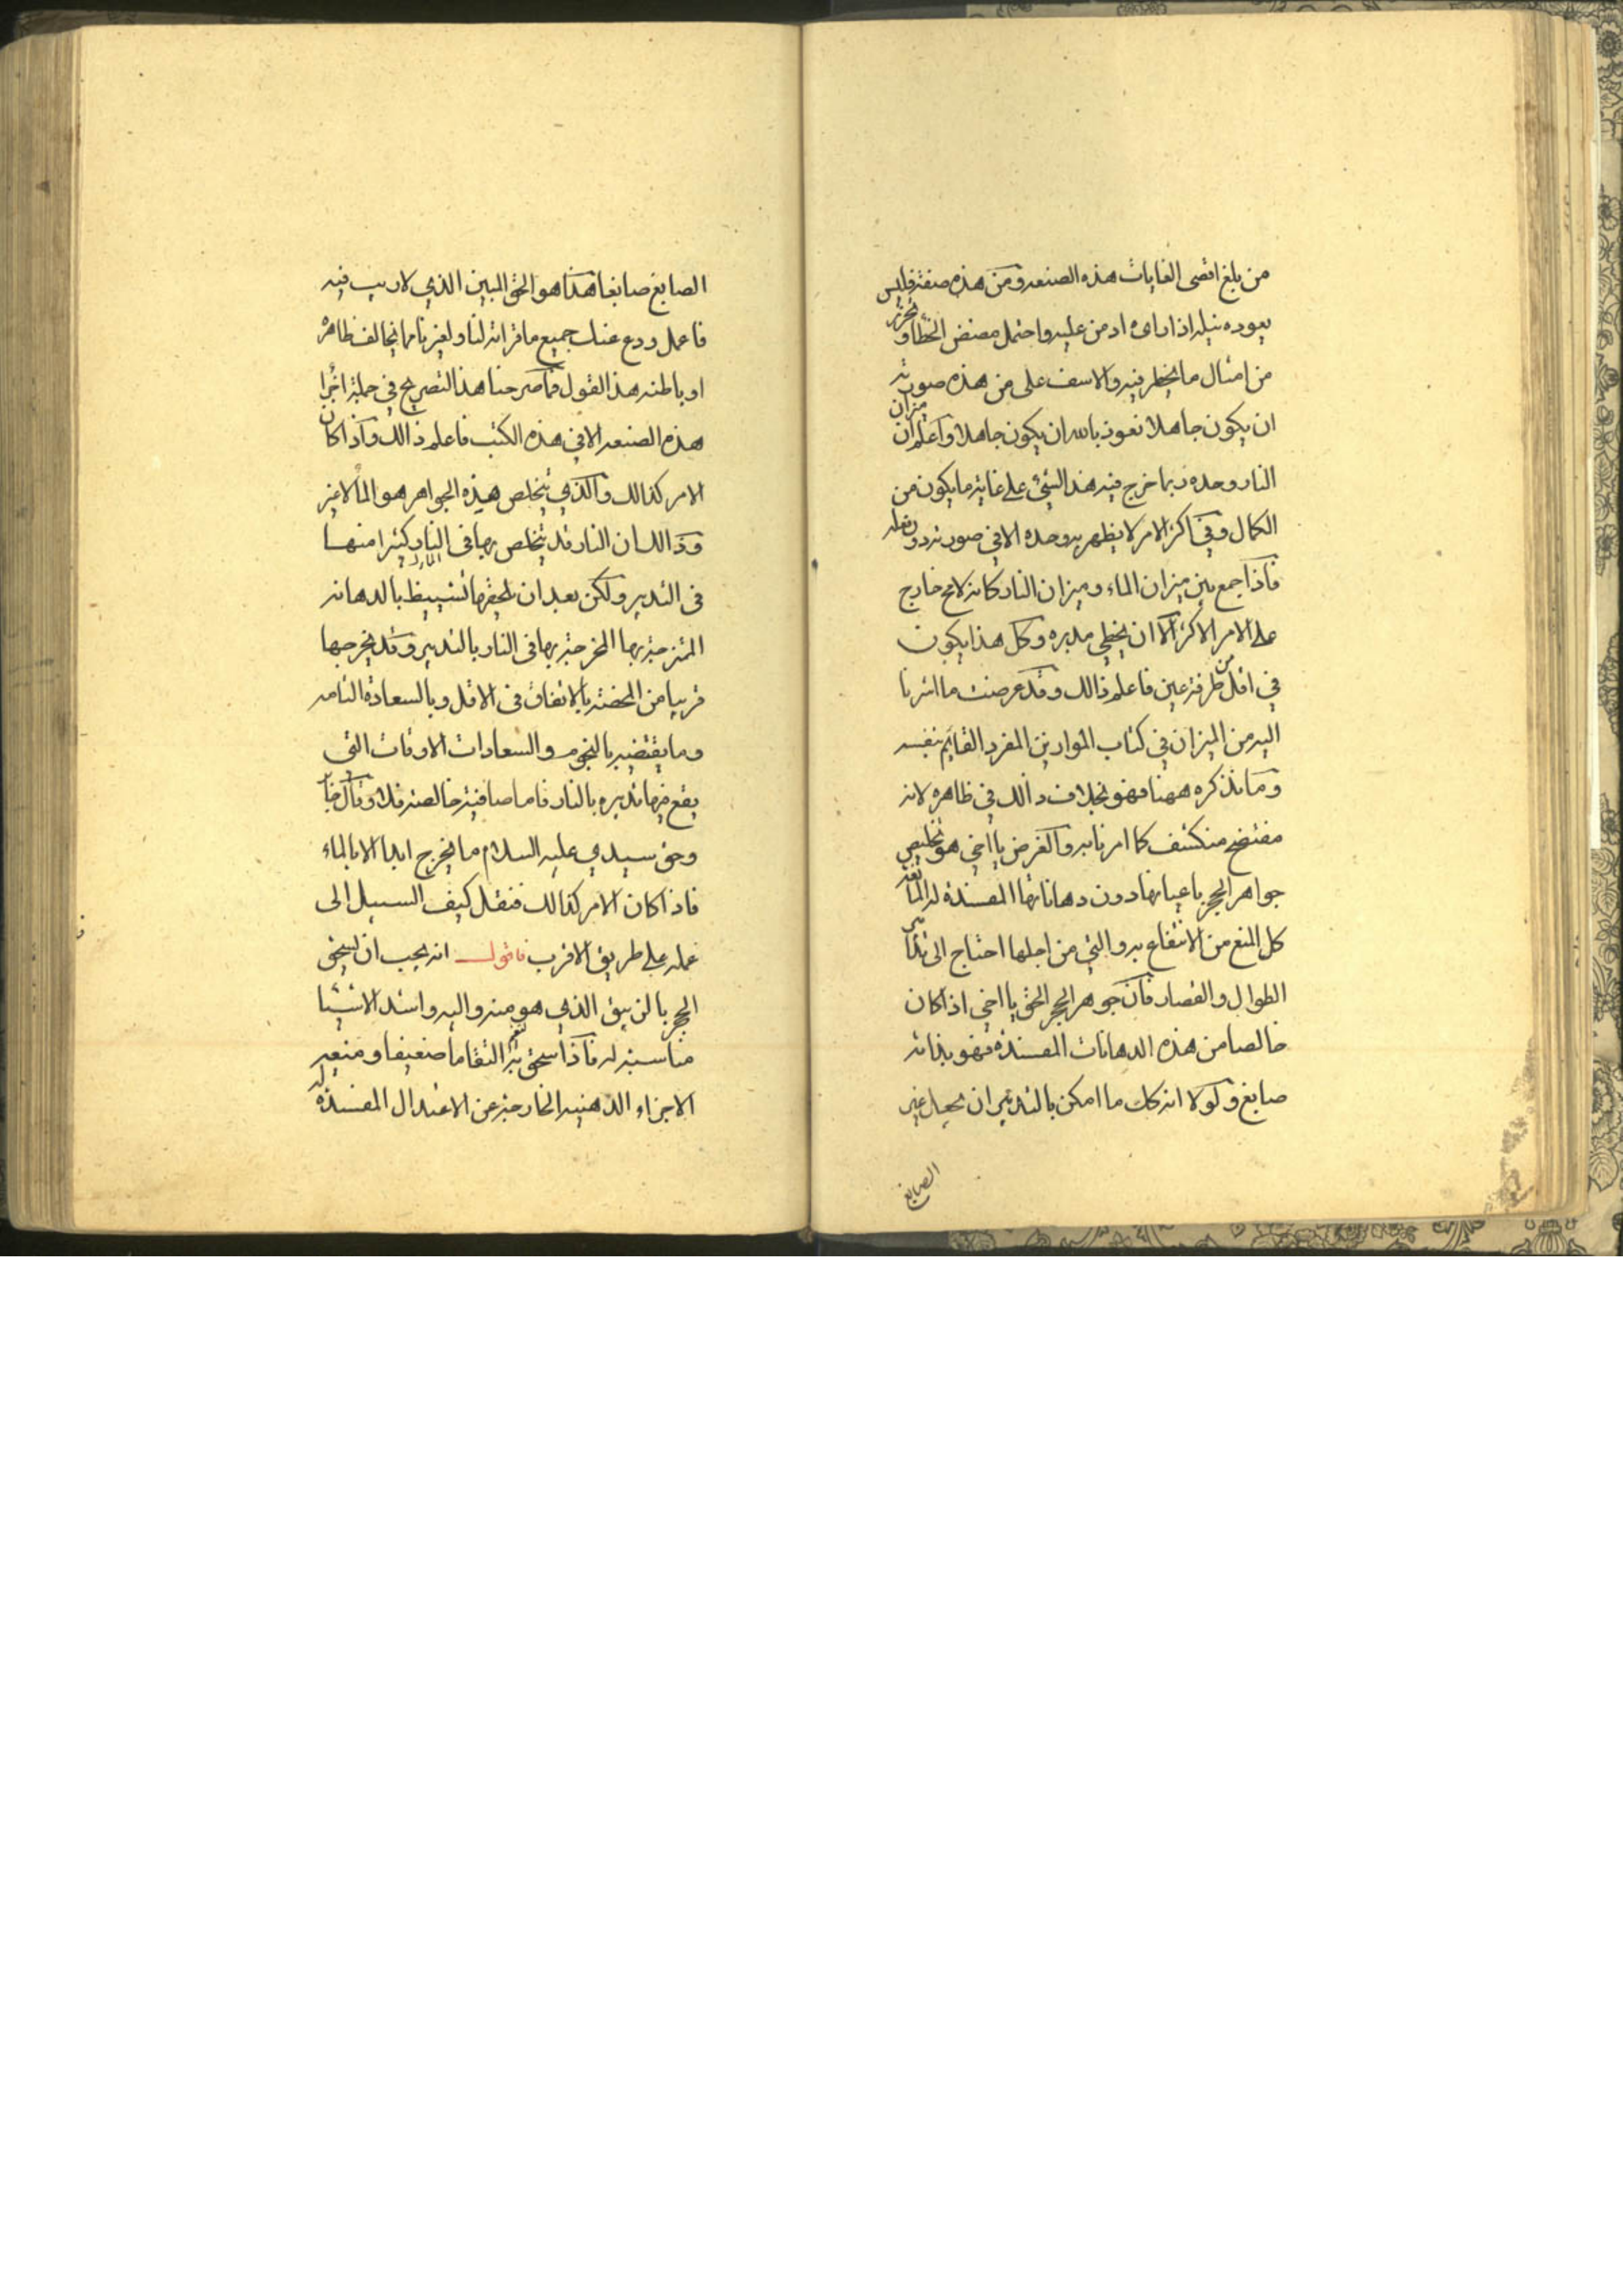 من بلغ اقصى الغايات هذه الصنعه ومن هذه صفته فليس
يعوده نيله اذا اداى ادمن عليه واحتمل مضض الخطأ وتحرز
من امثال ما يخطر فيه والاسف على من هذه صورته
ان يكون جاهلا نعوذ بالله ان يكون جاهلا واعلم ان ميزان
النار وحده ربما خرج فيه هذا الشئ على غاية ما يكون من
الكمال وفي اكثر الامر لا يظهر به وحده الا في صورته دون فعله
فاذا جمع بين ميزان الماء وميزان النار كانه لامح خارج
على الامر الاكثر الا ان يخطي مدبره وكل هذا يكون
في اقل من طرفة عين فاعلم ذالك وقد عرضت ما اشرنا
اليه من الميزان في كتاب الموازين المفرد القايم بنفسه
وما نذكره ههنا فهو بخلاف ذالك في ظاهره لانه
مفتضح منكشف كما امرنا به والغرض يا اخي هو تخليص
جواهر الحجر باعيانها دون دهاناتها المفسدة له المانعة
كل المنع من الانتفاع به والتي من اجلها احتاج الى تدابير
الطوال والقصار فان جوهر الحجر الحق يا اخي اذا كان
خالصا من هذه الدهانات المفسدة فهو بذاته
صابغ ولولا انه كك ما امكن بالتدبير ان يجعل غير
الصابغ
الصابغ صابغا هذا هو الحق المبين الذي لا ريب فيه
فاعمل ودع عنك جميع ما قراته لنا ولغيرنا مما يخالف ظاهره
او باطنه هذا القول فما صرحنا هذا التصريح في جملة اجزا
هذه الصنعه الا في هذه الكتب فاعلم ذالك واذا كان
الامر كذالك والذي يتخلص هذه الجواهر هو الما لا غير
وذالك ان النار قد يتخلص بها في النار كثيرا منها
في التدبير ولكن بعد ان يلحقها تشييط بالدهانه
الممتزجة بها المخرجة بها في النار بالتدبير وقد يخرجها
قريبا من المحضة بالاتفاق في الاقل وبالسعادة التامه
وما يقتضيه بالنجوم والسعادات الاوقات التي
يقع فيها تدبيره بالنار فاما صافية خالصه فلا وقال
وحق سيدي عليه السلام ما يخرج ابدا الا بالماء
فاذا كان الامر كذالك فنقل كيف السبيل الى
عمله على طريق الاقرب فاقول انه يجب ان يسحق
الحجر بالزيبق الذي هو منه واليه واشد الاشيا
مناسبة له فاذا سحق به التقاما ضعيفا ومنعه
الاجزاء الدهنيه الخارجة عن الاعتدال المفسدة له